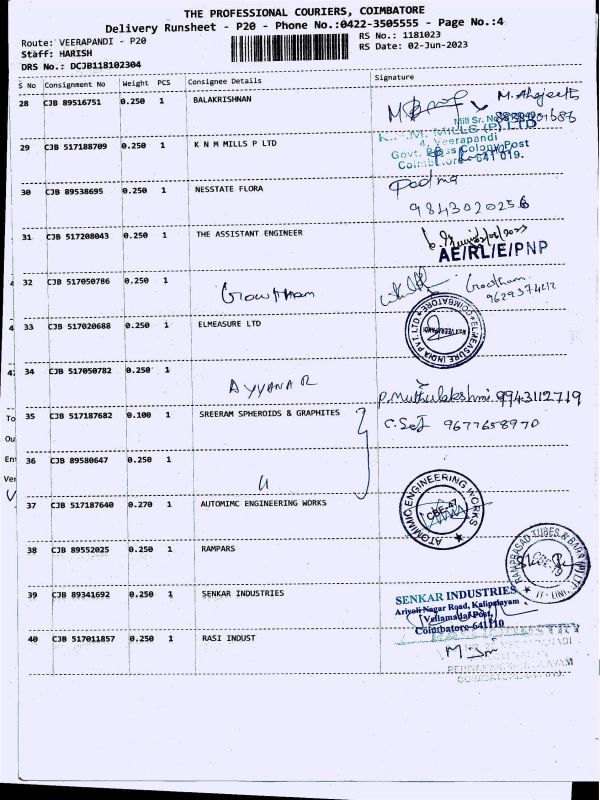 THE PROFESSIONAL COURIERS, COIMBATORE
Delivery Runsheet - P20 - Phone No.:0422-3505555 - Page No.:4
Route: VEERAPANDI - P20
RS No.: 1181023
Staff: HARISH
RS Date: 02-Jun-2023
DRS No.: DCJB118102304
S No Consignment No Weight PCS Consignee Details Signature
28 CJB 89516751 0.250 1 BALAKRISHNAN
29 CJB 517188709 0.250 1 K N M MILLS P LTD
Mill Sr. No
MILLS (P) LTD
4, Veerapandi
Govt. Press Colony Post
Coimbatore - 641 019.
30 CJB 89538695 0.250 1 NESSTATE FLORA
Padma
9843020256
31 CJB 517208043 0.250 1 THE ASSISTANT ENGINEER
AE/RL/E/PNP
32 CJB 517050786 0.250 1
Gowtham
Gowtham
33 CJB 517020688 0.250 1 ELMEASURE LTD
ELMEASURE INDIA PVT. LTD COIMBATORE
34 CJB 517050782 0.250 1
AYYANAR
P. Muthulakshmi 9943112719
35 CJB 517187682 0.100 1 SREERAM SPHEROIDS & GRAPHITES
9677658970
36 CJB 89580647 0.250 1
37 CJB 517187640 0.270 1 AUTOMIMC ENGINEERING WORKS
ATOMIMIC ENGINEERING WORKS
CBE-47
38 CJB 89552025 0.250 1 RAMPARS
RAMPRASAD TUBES & BARS (P) LTD.
39 CJB 89341692 0.250 1 SENKAR INDUSTRIES
SENKAR INDUSTRIES
Ariyoli Nagar Road, Kalipalayam
Vellamadai Post,
Coimbatore-641110
40 CJB 517011857 0.250 1 RASI INDUST